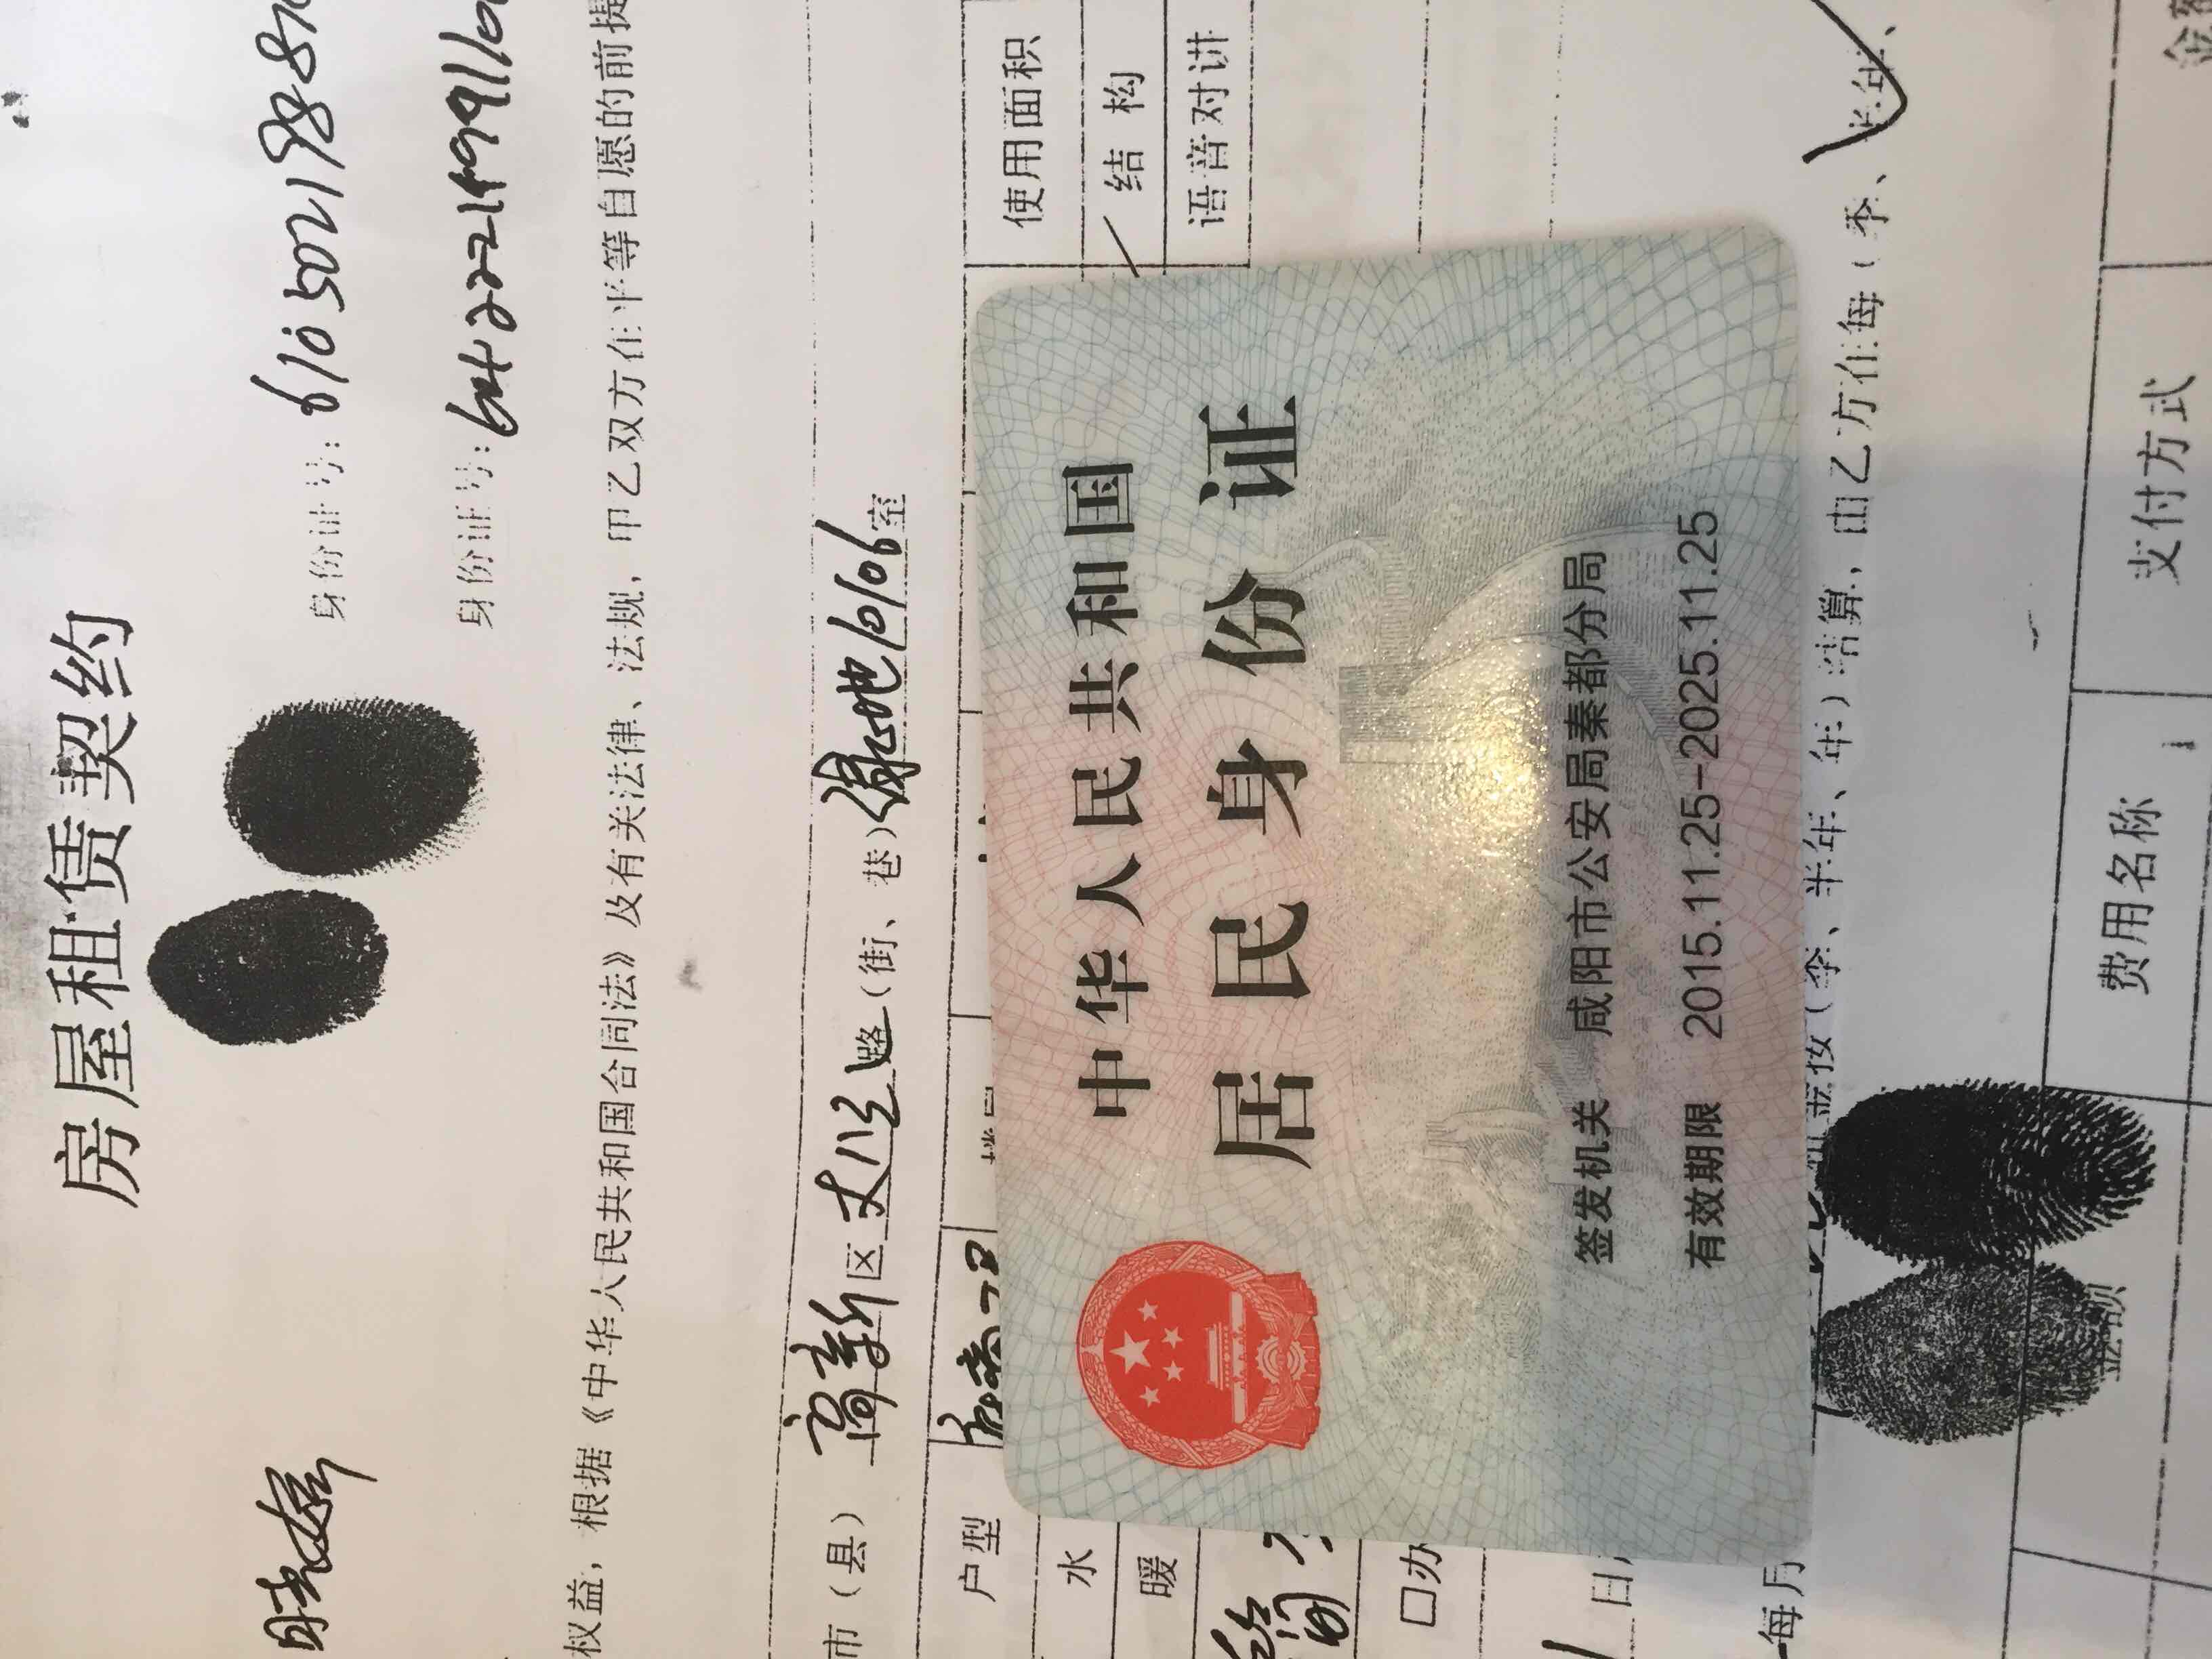 房屋租赁契约
身份证号: 610502198810
身份证号: 
权益，根据《中华人民共和国合同法》及有关法律、法规，甲乙双方在平等自愿的前提
市（县）高新区丈八三路（街、巷）绿地10106室
户型 楼层 使用面积
水 结 构
暖 语音对讲
□办
中华人民共和国
居民身份证
签发机关 咸阳市公安局秦都分局
有效期限 2015.11.25-2025.11.25
日
每月
租金按（季、半年、年）结算，由乙方在每（季、半年、
金额 费用名称 支付方式 金额